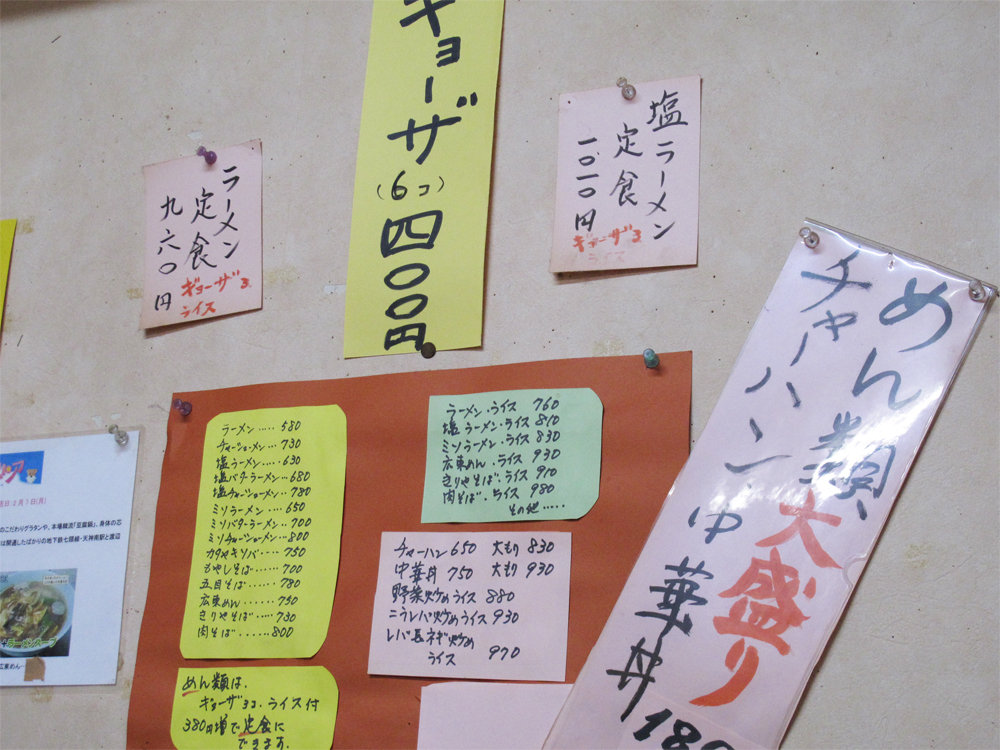 ギョーザ
(6コ)
四〇〇円
ラーメン
定食
九六〇円
ギョーザ3
ライス
塩ラーメン
定食
一、〇一〇円
ギョーザ3
ライス
めん類、
チャーハン、中華丼
大盛り
ラーメン.....580
チャーシューメン...730
塩ラーメン....630
塩バターラーメン...680
塩チャーシューメン..780
ミソラーメン....650
ミソバターラーメン..700
ミソチャーシューメン...800
カタヤキソバ....750
もやしそば.....700
五目そば......780
広東めん......750
きりやそば.....730
肉そば......800
ラーメン・ライス 760
塩ラーメン・ライス 810
ミソラーメン・ライス 830
広東めん・ライス 930
きりやそば・ライス 910
肉そば・ライス 980
その他.....
チャーハン 650 大もり 830
中華丼 750 大もり 930
野菜炒めライス 880
ニラレバ炒めライス 930
レバ長ネギ炒め
ライス 970
めん類は、
ギョーザ3コ、ライス付
380円増で定食に
できます。